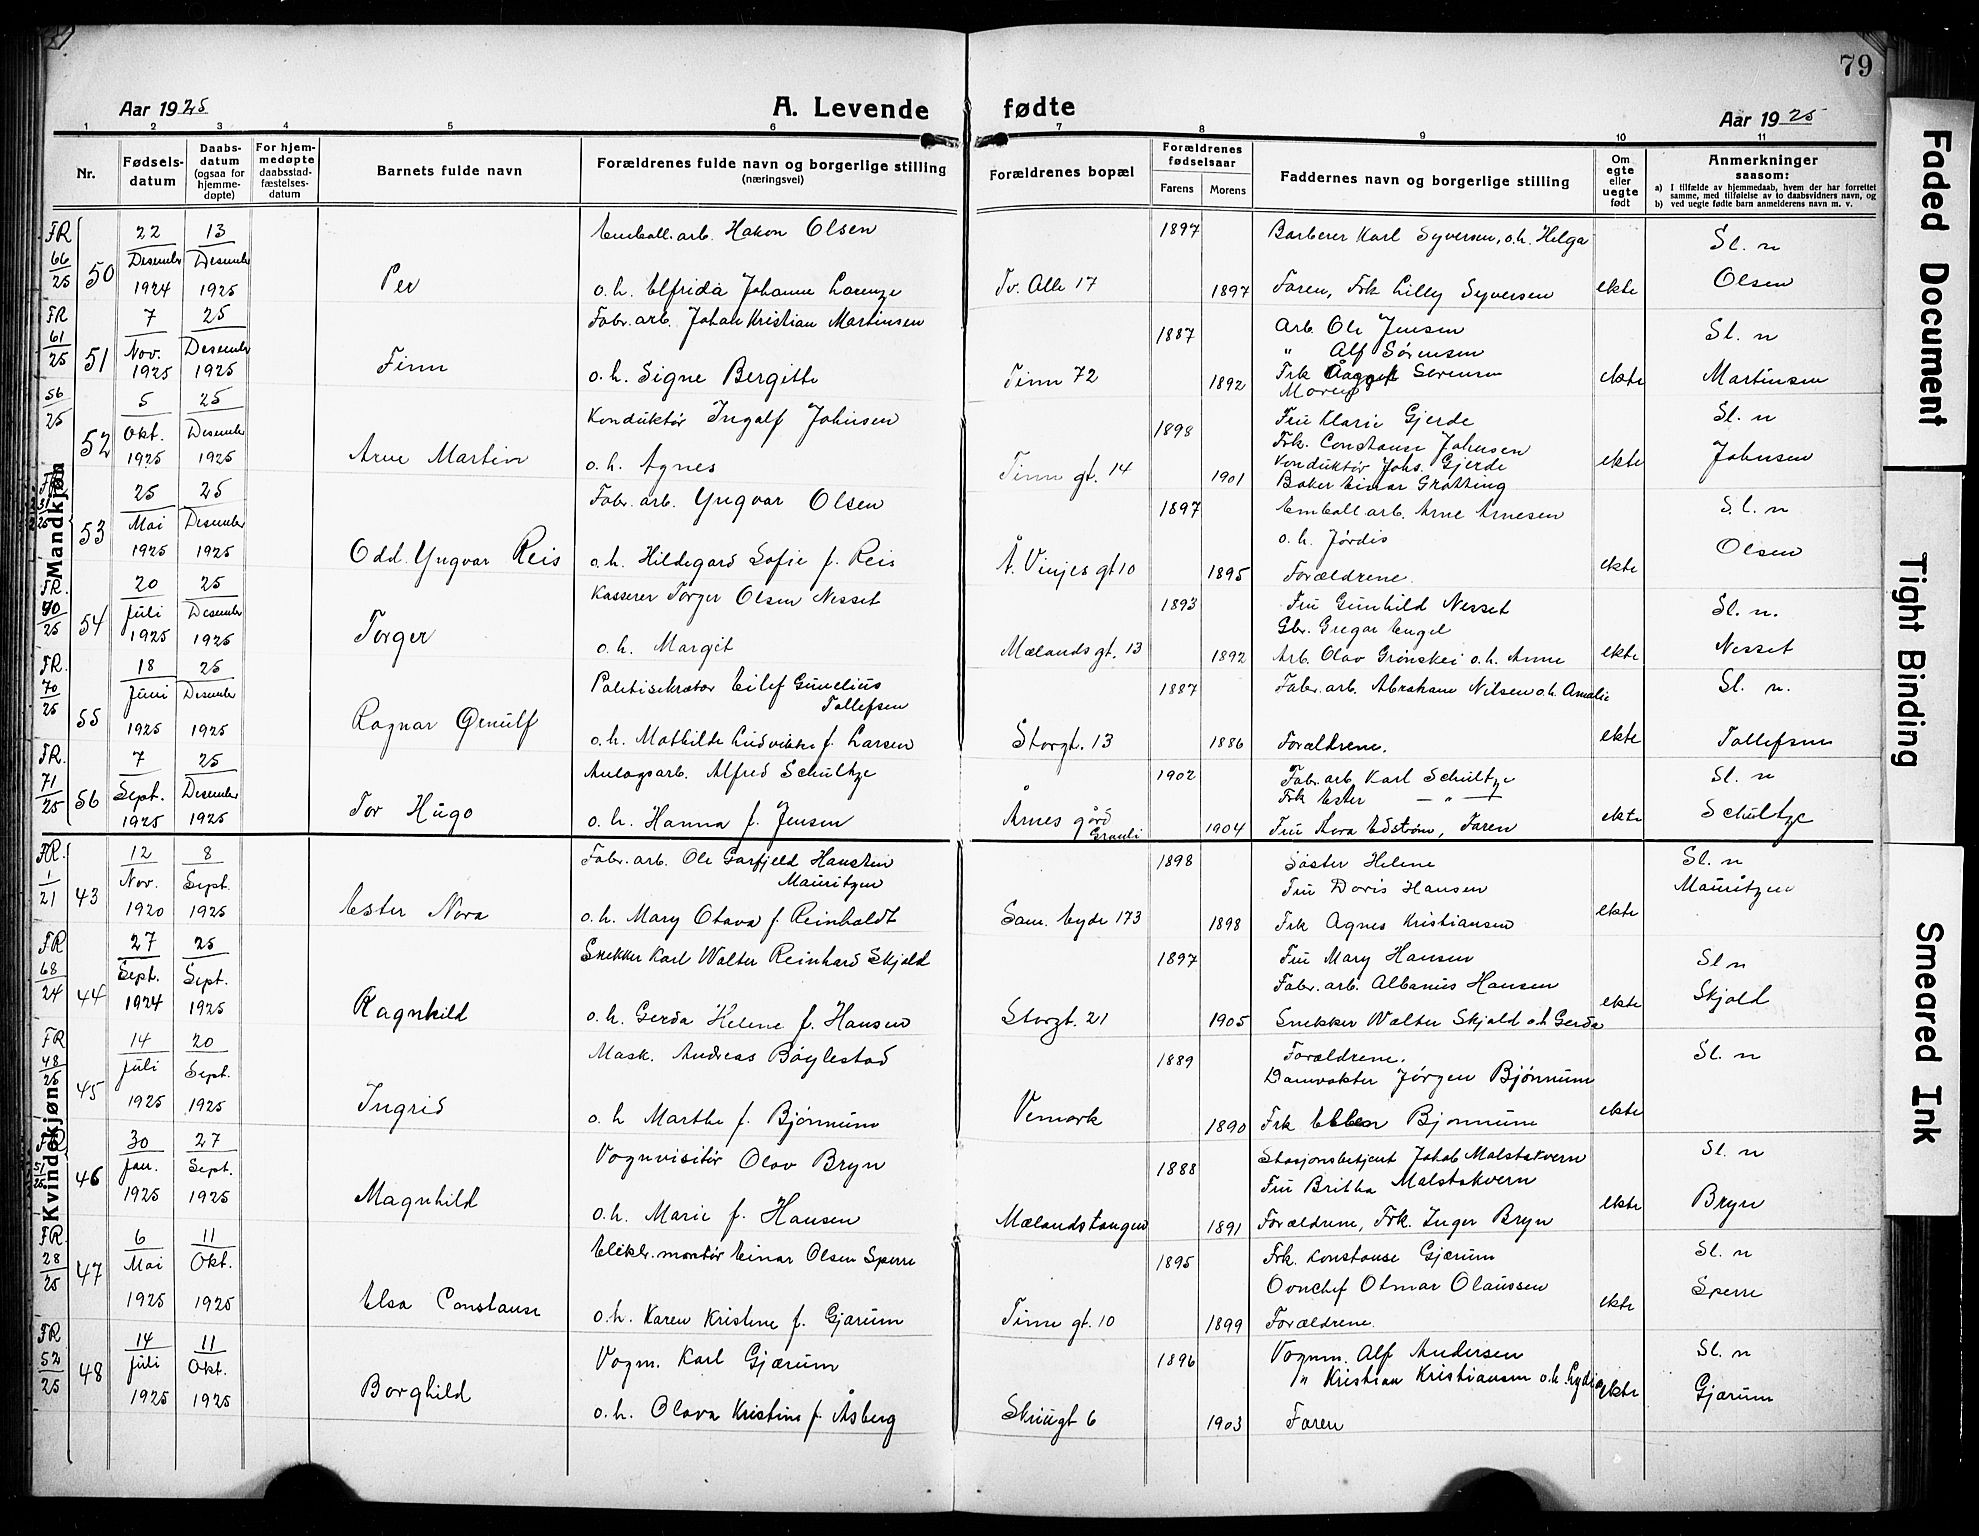 79
Aar 1925
A. Levende fødte
Aar 1925
1 2 3 4 5 6 7 8 9 10 11
Nr.
Fødsels-datum
Daabs-datum (ogsaa for hjemme-døpte)
For hjem-medøpte daabsstad-fæstelses-datum
Barnets fulde navn
Forældrenes fulde navn og borgerlige stilling (næringsvei)
Forældrenes bopæl
Forældrenes fødselsaar
Farens Morens
Faddernes navn og borgerlige stilling
Om egte eller uegte født
Anmerkninger saasom:
a) I tilfælde av hjemmedaab, hvem der har forrettet samme, med tilføielse av to daabsvidners navn, og
b) ved uegte fødte barn anmelderens navn m. v.
Mandkjøn
FR 66/25 50 22 Desember 1924 13 Desember 1925 Per
Emball. arb. Hakon Olsen
o. h. Elfrida Johanne Lorenze
Tv. Alle 17 1897 1897
Barberer Karl Syversen, o. h. Helga
Faren, Frk Lilly Syversen
ekte Sl. n Olsen
FR 61/25 51 7 Nov. 1925 25 Desember 1925 Finn
Fabr. arb. Johan Kristian Martinsen
o. h. Signe Bergitte
Tinn 72 1887 1892
Arb. Ole Jensen
" Alf Sørensen
Frk Aagot Sørensen
Moren
ekte Sl. n Martinsen
56/25 52 5 Okt. 1925 25 Desember 1925 Arne Martin
Konduktør Ingolf Johnsen
o. h. Agnes
Tinn gt. 14 1898 1901
Fru Marie Gjerde
Frk. Constanse Johnsen
Konduktør Johs. Gjerde
Baker Einar Grøtting
ekte Sl. n Johnsen
53 25 Mai 1925 25 Desember 1925 Odd Yngvar Reis
Fabr. arb. Yngvar Olsen
o. h. Hildegard Sofie f. Reis
A. Vinjes gt 10 1897 1895
Emball. arb. Arne Arnesen
o. h. Jørdis
Forældrene.
ekte S. l. n Olsen
FR. 70/25 54 20 Juli 1925 25 Desember 1925 Torger
Kasserer Torger Olsen Nesset
o. h. Margit
Mælandsgt. 13 1893 1892
Fru Gunhild Nesset
Gbr. Gregar Engel
Arb. Olav Grønskei o. h. Anne
ekte Sl. n. Nesset
FR. 70/25 55 18 Juni 1925 25 Desember 1925 Ragnar Ørnulf
Politisekretær Eilef Gunelius Tollefsen
o. h. Mathilde Ludvikke f. Larsen
Storgt. 13 1887 1886
Fabr. arb. Abraham Nilsen o. h. Amalie
Forældrene.
ekte Sl. n. Tollefsen
FR. 71/25 56 7 Sept. 1925 25 Desember 1925 Tor Hugo
Anlagsarb. Alfred Schultze
o. h. Hanna f. Jensen
Årnes gård Grauli 1902 1904
Fabr. arb. Karl Schultze
Frk Ester — " —
Fru Aora Edstrøm, Faren
ekte Sl. n Schultze
Kvindekjøn
FR. 1/21 43 12 Nov. 1920 8 Sept. 1925 Ester Nora
Fabr. arb. Ole Garfjeld Hanstein Mauritzen
o. h. Mary Otava f. Reinholdt
Sam. Eyde 173 1898 1898
Søster Helene
Fru Doris Hansen
Frk Agnes Kristiansen
ekte Sl. n Mauritzen
FR 68/24 44 27 Sept. 1924 25 Sept. 1925 Ragnhild
Snekker Karl Walter Reinhard Skjold
o. h. Gerda Helene f. Hansen
Storgt. 21 1897 1905
Fru Mary Hansen
Fabr. arb. Albanius Hansen
Snekker Walter Skjold o. h Gerda
ekte Sl n Skjold
FR 48/25 45 14 Juli 1925 20 Sept. 1925 Ingrid
Mask. Andreas Bøylestad
o. h Marthe f. Bjønnum
Vemork 1889 1890
Forældrene.
Damvokter Jørgen Bjønnum
Frk Ellen Bjønnum
ekte Sl. n
FR 51/25 46 30 Jan. 1925 27 Sept. 1925 Magnhild
Vognvisitør Olav Bryn
o. h. Marie f. Hansen
Mælandstangen 1888 1891
Stasjonsbetjent Jakob Malstakvern
Fru Britha Malstakvern
Forældrene, Frk. Inger Bryn
ekte Sl. n Bryn
FR. 28/25 47 6 Mai 1925 11 Okt. 1925 Elsa Constanse
Elektr. montør Einar Olsen Sperre
o. h. Karen Kristine f. Gjærum
Tinn gt. 10 1895 1899
Frk. Konstanse Gjærum
Ovnchef Otmar Olaussen
Forældrene.
ekte Sl. n Sperre
FR 52/25 48 14 Juli 1925 11 Okt. 1925 Borghild
Vogm. Karl Gjærum
o. h. Olava Kristine f. Åsberg
Skriugt 6 1896 1903
Vognm. Alf Andersen
" Kristian Kristiansen o. h. Lydia
Faren
ekte Sl. n Gjærum
Faded Document
Tight Binding
Smeared Ink